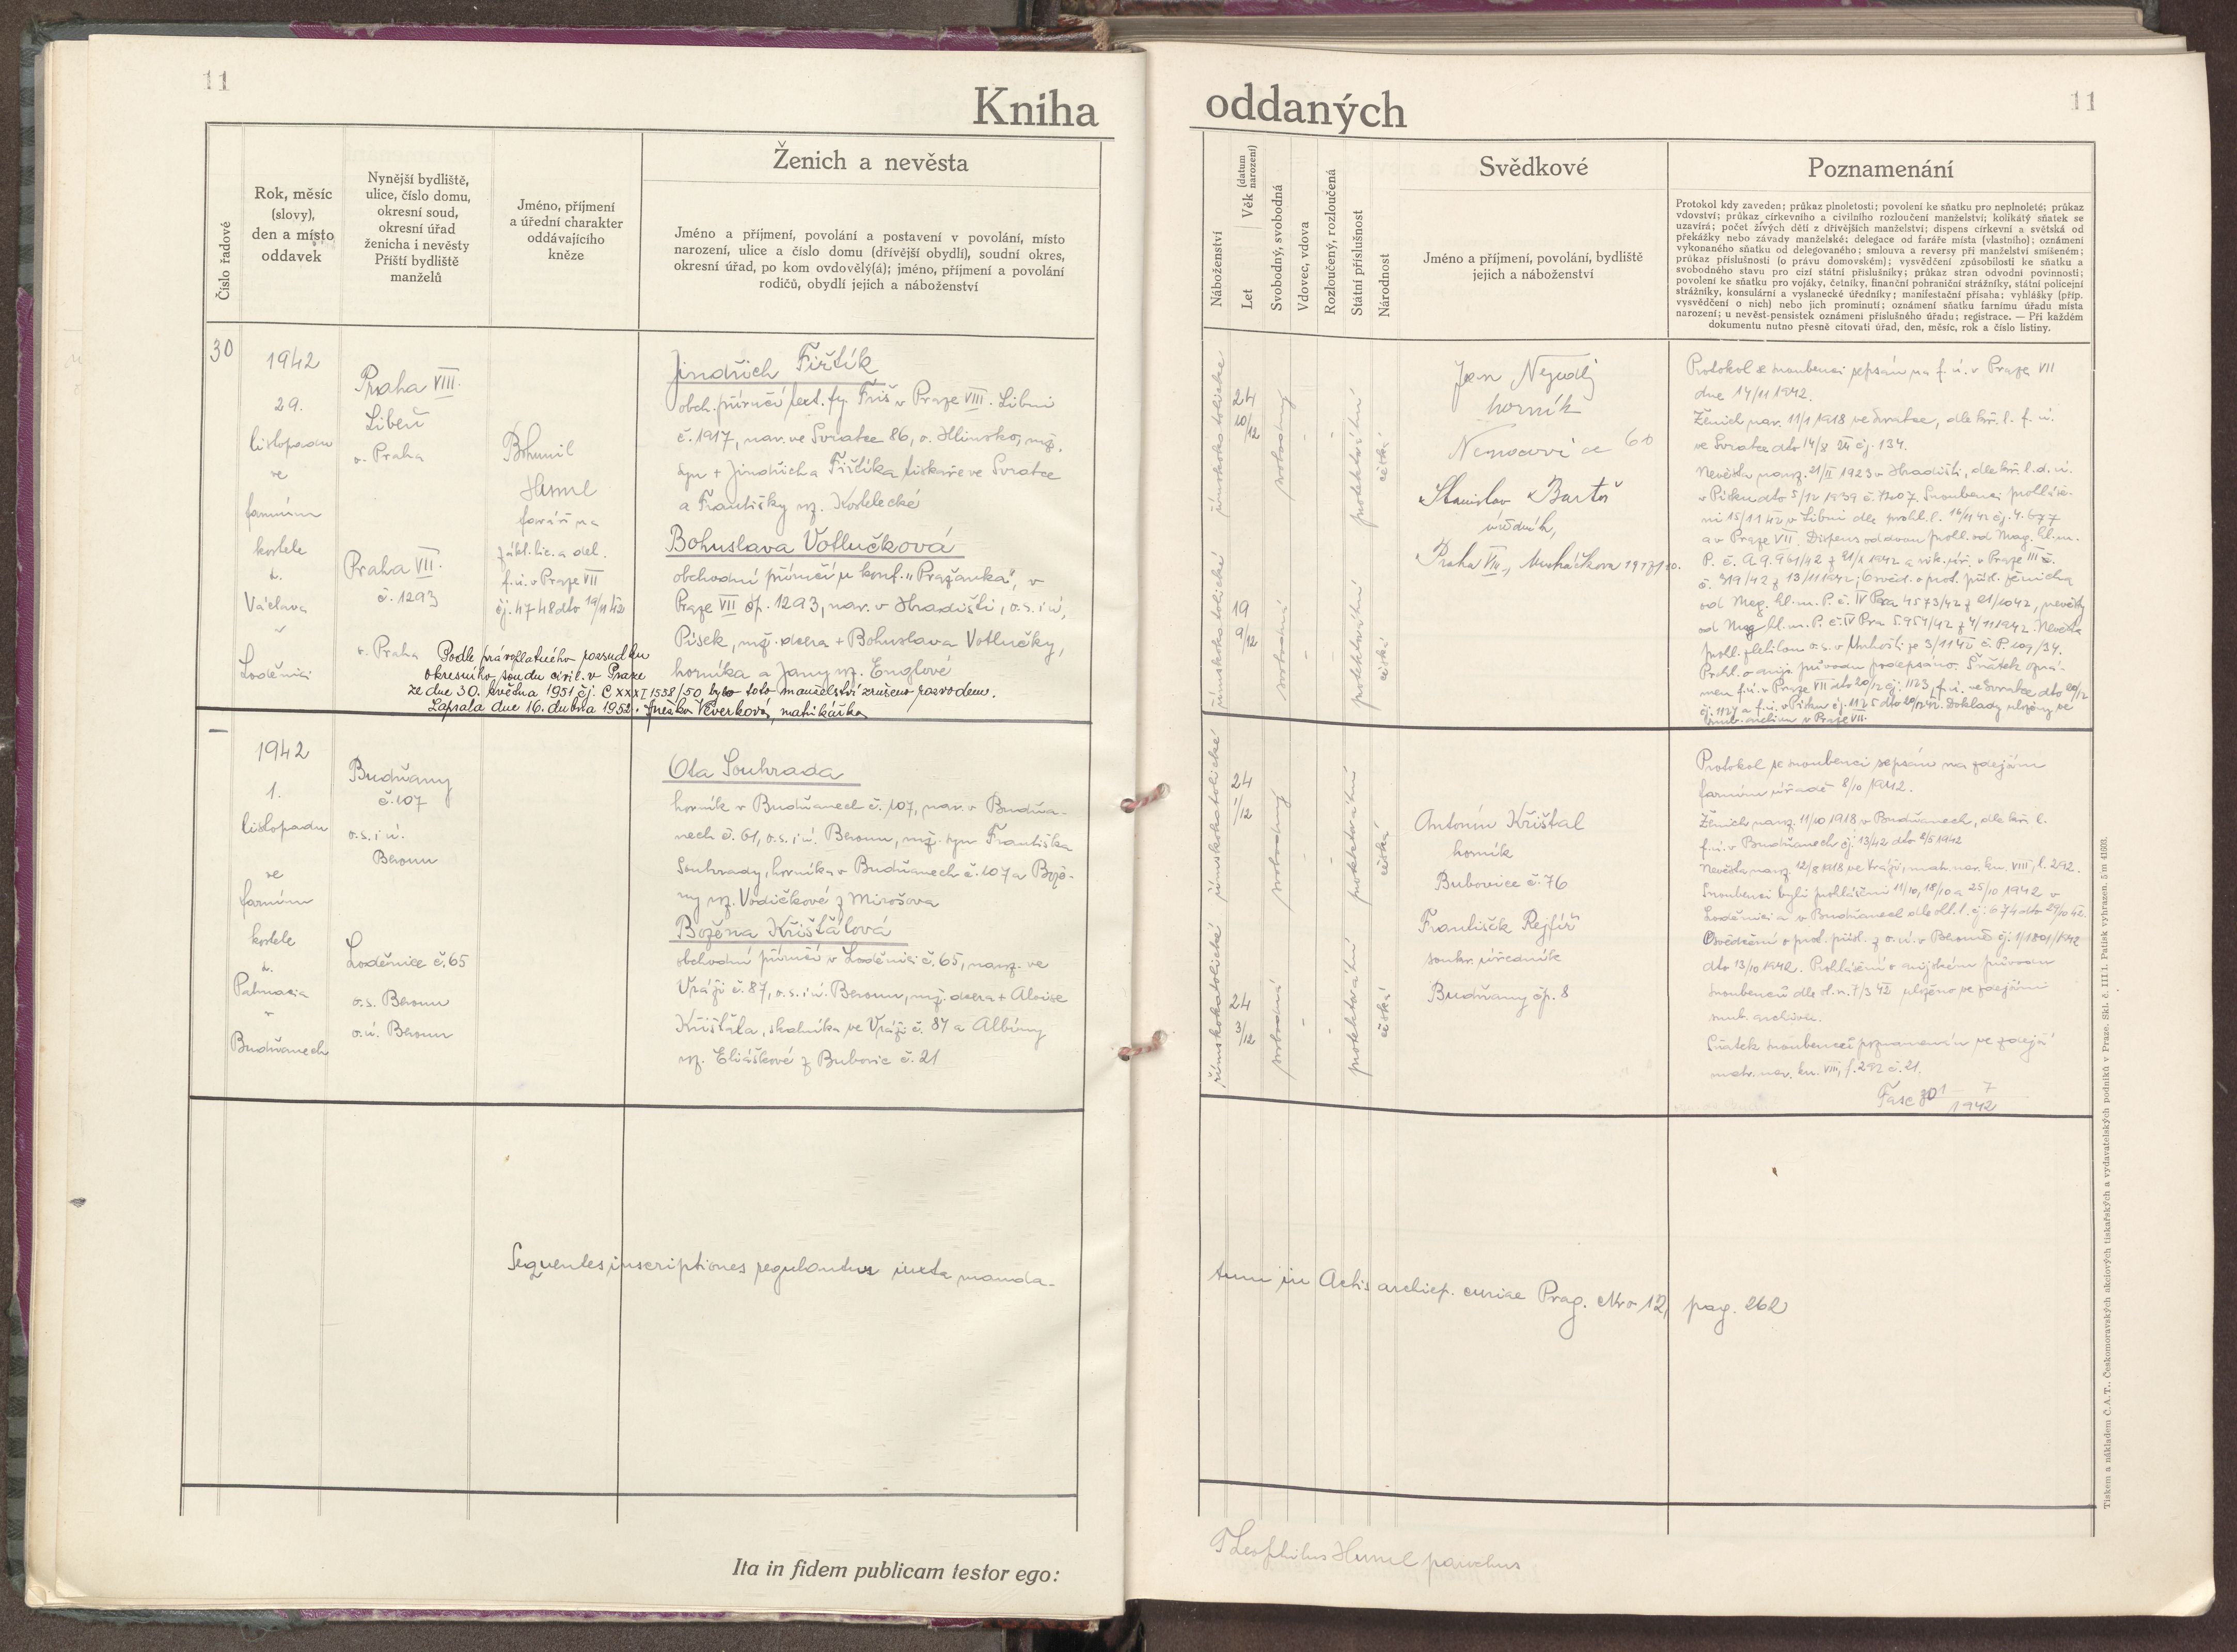 11
Kniha
Číslo řadové
Rok, měsíc
(slovy),
den a místo
oddavek
Nynější bydliště,
ulice, číslo domu,
okresní soud,
okresní úřad
ženicha i nevěsty
Příští bydliště
manželů
Jméno, příjmení
a úřední charakter
oddávajícího
kněze
Ženich a nevěsta
Jméno a příjmení, povolání a postavení v povolání, místo
narození, ulice a číslo domu (dřívější obydlí), soudní okres,
okresní úřad, po kom ovdověly(á); jméno, příjmení a povolání
rodičů, obydlí jejich a náboženství
30
1942
29.
listopadu
ve
farním
kostele
sv.
Václava
v
Loděnici
Praha VIII.
Libeň
o. Praha
Praha VII.
č. 1293
o. Praha
Bohumil
Huml
farář na
zákl. lic. a del.
f. ú. v Praze VII
čj. 4748 dto 19/11 42
Jindřich Fiřtík
obch. příručí text. fy. Friš v Praze VIII. Libni
č. 1917, nar. ve Svratce 86, o. Hlinsko, mž.
syn + Jindřicha Fiřtíka tiskaře ve Svratce
a Františky rz. Kostelecké
Bohuslava Votlučková
obchodní příručí u konf. „Pražanka", v
Praze VII čp. 1293, nar. v Hradišti, o. s. i ú,
Písek, mž. dcera + Bohuslava Votlučky,
horníka a Jany rz. Englové
Podle právoplatného rozsudku
okresního soudu civil. v Praze
ze dne 30. května 1951 čj. C XXXI 1558/50 bylo toto manželství zrušeno rozvodem.
Zapsala dne 16. dubna 1952. Anežka Veverková, matrikářka
–
1942
1.
listopadu
ve
farním
kostele
sv.
Palmacia
v
Budňanech
Budňany
č. 107
o. s. i ú.
Beroun
Loděnice č. 65
o. s. Beroun
o. ú. Beroun
Ota Souhrada
horník v Budňanech č. 107, nar. v Budňa-
nech č. 61, o. s. i ú. Beroun, mž. syn Františka
Souhrady, horníka v Budňanech č. 107 a Bože-
ny rz. Vodičkové z Mirošova
Božena Křišťálová
obchodní příručí v Loděnici č. 65, naroz. ve
Vráži č. 87, o. s. i ú. Beroun, mž. dcera + Aloise
Křišťála, skalníka ve Vráži č. 87 a Albíny
rz. Eliáškové z Bubovic č. 21
Sequentes inscriptiones regulantur iuxta manda-
Ita in fidem publicam testor ego:
oddaných
11
Náboženství
Let
Věk (datum narození)
Svobodný, svobodná
Vdovec, vdova
Rozloučený, rozloučená
Státní příslušnost
Národnost
Svědkové
Jméno a příjmení, povolání, bydliště
jejich a náboženství
Poznamenání
Protokol kdy zaveden; průkaz plnoletosti; povolení ke sňatku pro neplnoleté; průkaz
vdovství; průkaz církevního a civilního rozloučení manželství; kolikátý sňatek se
uzavírá; počet živých dětí z dřívějších manželství; dispens církevní a světská od
překážky nebo závady manželské; delegace od faráře místa (vlastního); oznámení
vykonaného sňatku od delegovaného; smlouva a reversy při manželství smíšeném;
průkaz příslušnosti (o právu domovském); vysvědčení způsobilosti ke sňatku a
svobodného stavu pro cizí státní příslušníky; průkaz stran odvodní povinnosti;
povolení ke sňatku pro vojáky, četníky, finanční pohraniční strážníky, státní policejní
strážníky, konsulární a vyslanecké úředníky; manifestační přísaha; vyhlášky (příp.
vysvědčení o nich) nebo jich prominutí; oznámení sňatku farnímu úřadu místa
narození; u nevěst-pensistek oznámení příslušného úřadu; registrace. — Při každém
dokumentu nutno přesně citovati úřad, den, měsíc, rok a číslo listiny.
římskokatolické
24
10/12
svobodný
-
-
protektorátní
česká
římskokatolické
19
9/12
svobodná
protektorátní
česká
Jan Nejedlý
horník
Nenačovice 60
Stanislav Bartoš
úředník,
Praha VIII., 
Protokol se snoubenci sepsán na f. ú. v Praze VII
dne 14/11 1942.
Ženich nar. 11/1 1918 ve Svratce, dle kř. l. f. ú.
ve Svratce dto 14/8 24 čj. 134.
Nevěsta naroz. 21/II 1923 v Hradišti, dle kř. l. d. ú.
v Písku dto 5/12 1939 č. 7207. Snoubenci prohláše-
ni 15/11 42 v Libni dle prohl. l. 16/11 42 čj. 4.677
a v Praze VII. Dispens od dvou prohl. od Mag. hl. m.
od Mag. hl. m. P. č. IV Pra 5.951/42 z 4/11 1942. Nevěsta
Prohl. o arij. původu podepsáno. Sňatek ozná-
men f. ú. v Praze VII dto 20/12 čj. 1123, f. ú. ve Svratce dto 20/12
čj. 1124 a f. ú. v Písku čj. 1125 dto 20/12 42. Doklady uloženy ve
snub. archivu v Praze VII.
římskokatolické
24
1/12
svobodný
-
-
protektorátní
česká
římskokatolické
24
3/12
svobodná
-
-
protektorátní
česká
Antonín Křišťal
horník
Bubovice č. 76
František Rejfíř
soukr. úředník
Budňany čp. 8
Protokol se snoubenci sepsán na zdejším
farním úřadě 8/10 1942.
Ženich naroz. 11/10 1918 v Budňanech, dle kř. l.
f. ú. v Budňanech čj. 13/42 dto 2/5 1942
Nevěsta naroz. 12/8 1918 ve Vráži, matr. nar. kn. VIII, l. 292.
Snoubenci byli prohlášeni 11/10, 18/10 a 25/10 1942 v
Loděnici a v Budňanech dle ohl. l. čj. 674 dto 29/10 42.
Osvědčení o prot. přísl. z o. ú. v Berouně čj. 1/1801/1942
dto 13/10 1942. Prohlášení o arijském původu
snoubenců dle vl. n. 7/3 42 uloženo ve zdejším
snub. archivu.
Sňatek snoubenců poznamenán ve zdejší
matr. nar. kn. VIII, f. 292 č. 21.
Fasc 301 7
1942
tum in Actis archiep. curiae Prag. Nro 12, pag. 262
Theophilus Huml parochus
Tiskem a nákladem Č.A.T., Českomoravských akciových tiskařských a vydavatelských podniků v Praze. Skl. č. III 1. Patisk vyhrazen. 5m 41603.